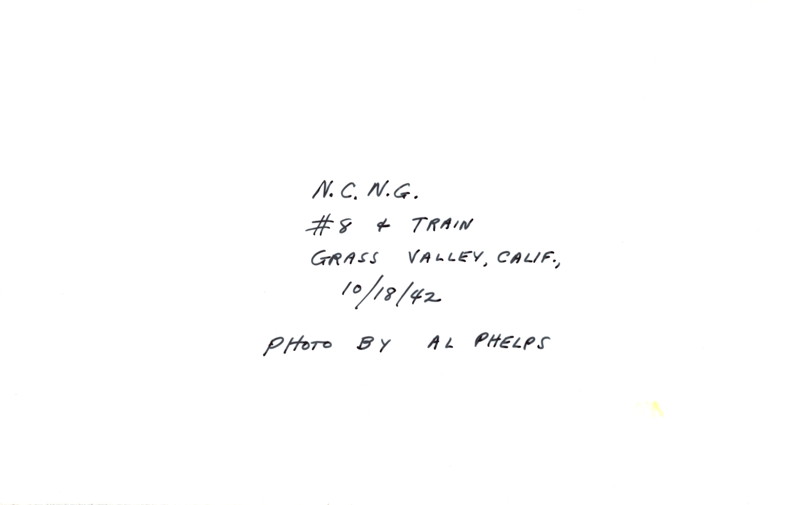 N.C. N.G.
#8 & TRAIN
GRASS VALLEY, CALIF.,
10/18/42
PHOTO BY AL PHELPS